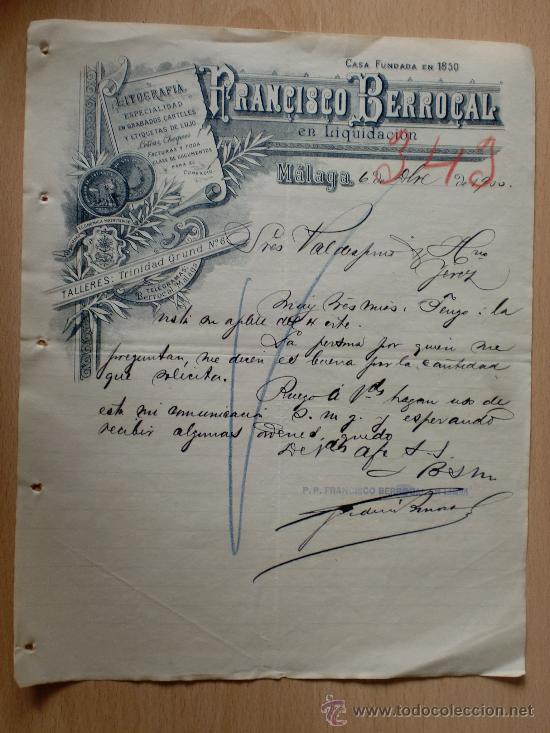 CASA FUNDADA EN 1830
LITOGRAFIA,
ESPECIALIDAD
EN GRABADOS, CARTELES
Y ETIQUETAS DE LUJO
Letras, Cheques
FACTURAS Y TODA
CLASE DE DOCUMENTOS
PARA EL
COMERCIO
FRANCISCO BERROCAL
en Liquidación
343
Málaga 6 de Obre de 1900.
TALLERES: Trinidad Grund Nº 6
TELEGRAMAS:
Berrocal Málaga
Sres Valdespino y Hno
Jerez
Muy Sres mios: Tengo á la
vista su aptble del 4 cite.
La persona por quien me
preguntan, me dicen es buena por la cantidad
que solicita.
Ruego á Vds hagan uso de
esta mi comunicación S. m. g. y esperando
recibir algunas órdenes, quedo
De Vds afo S. S.
Q B S M
P. P. FRANCISCO BERROCAL
todocoleccion
www.todocoleccion.net